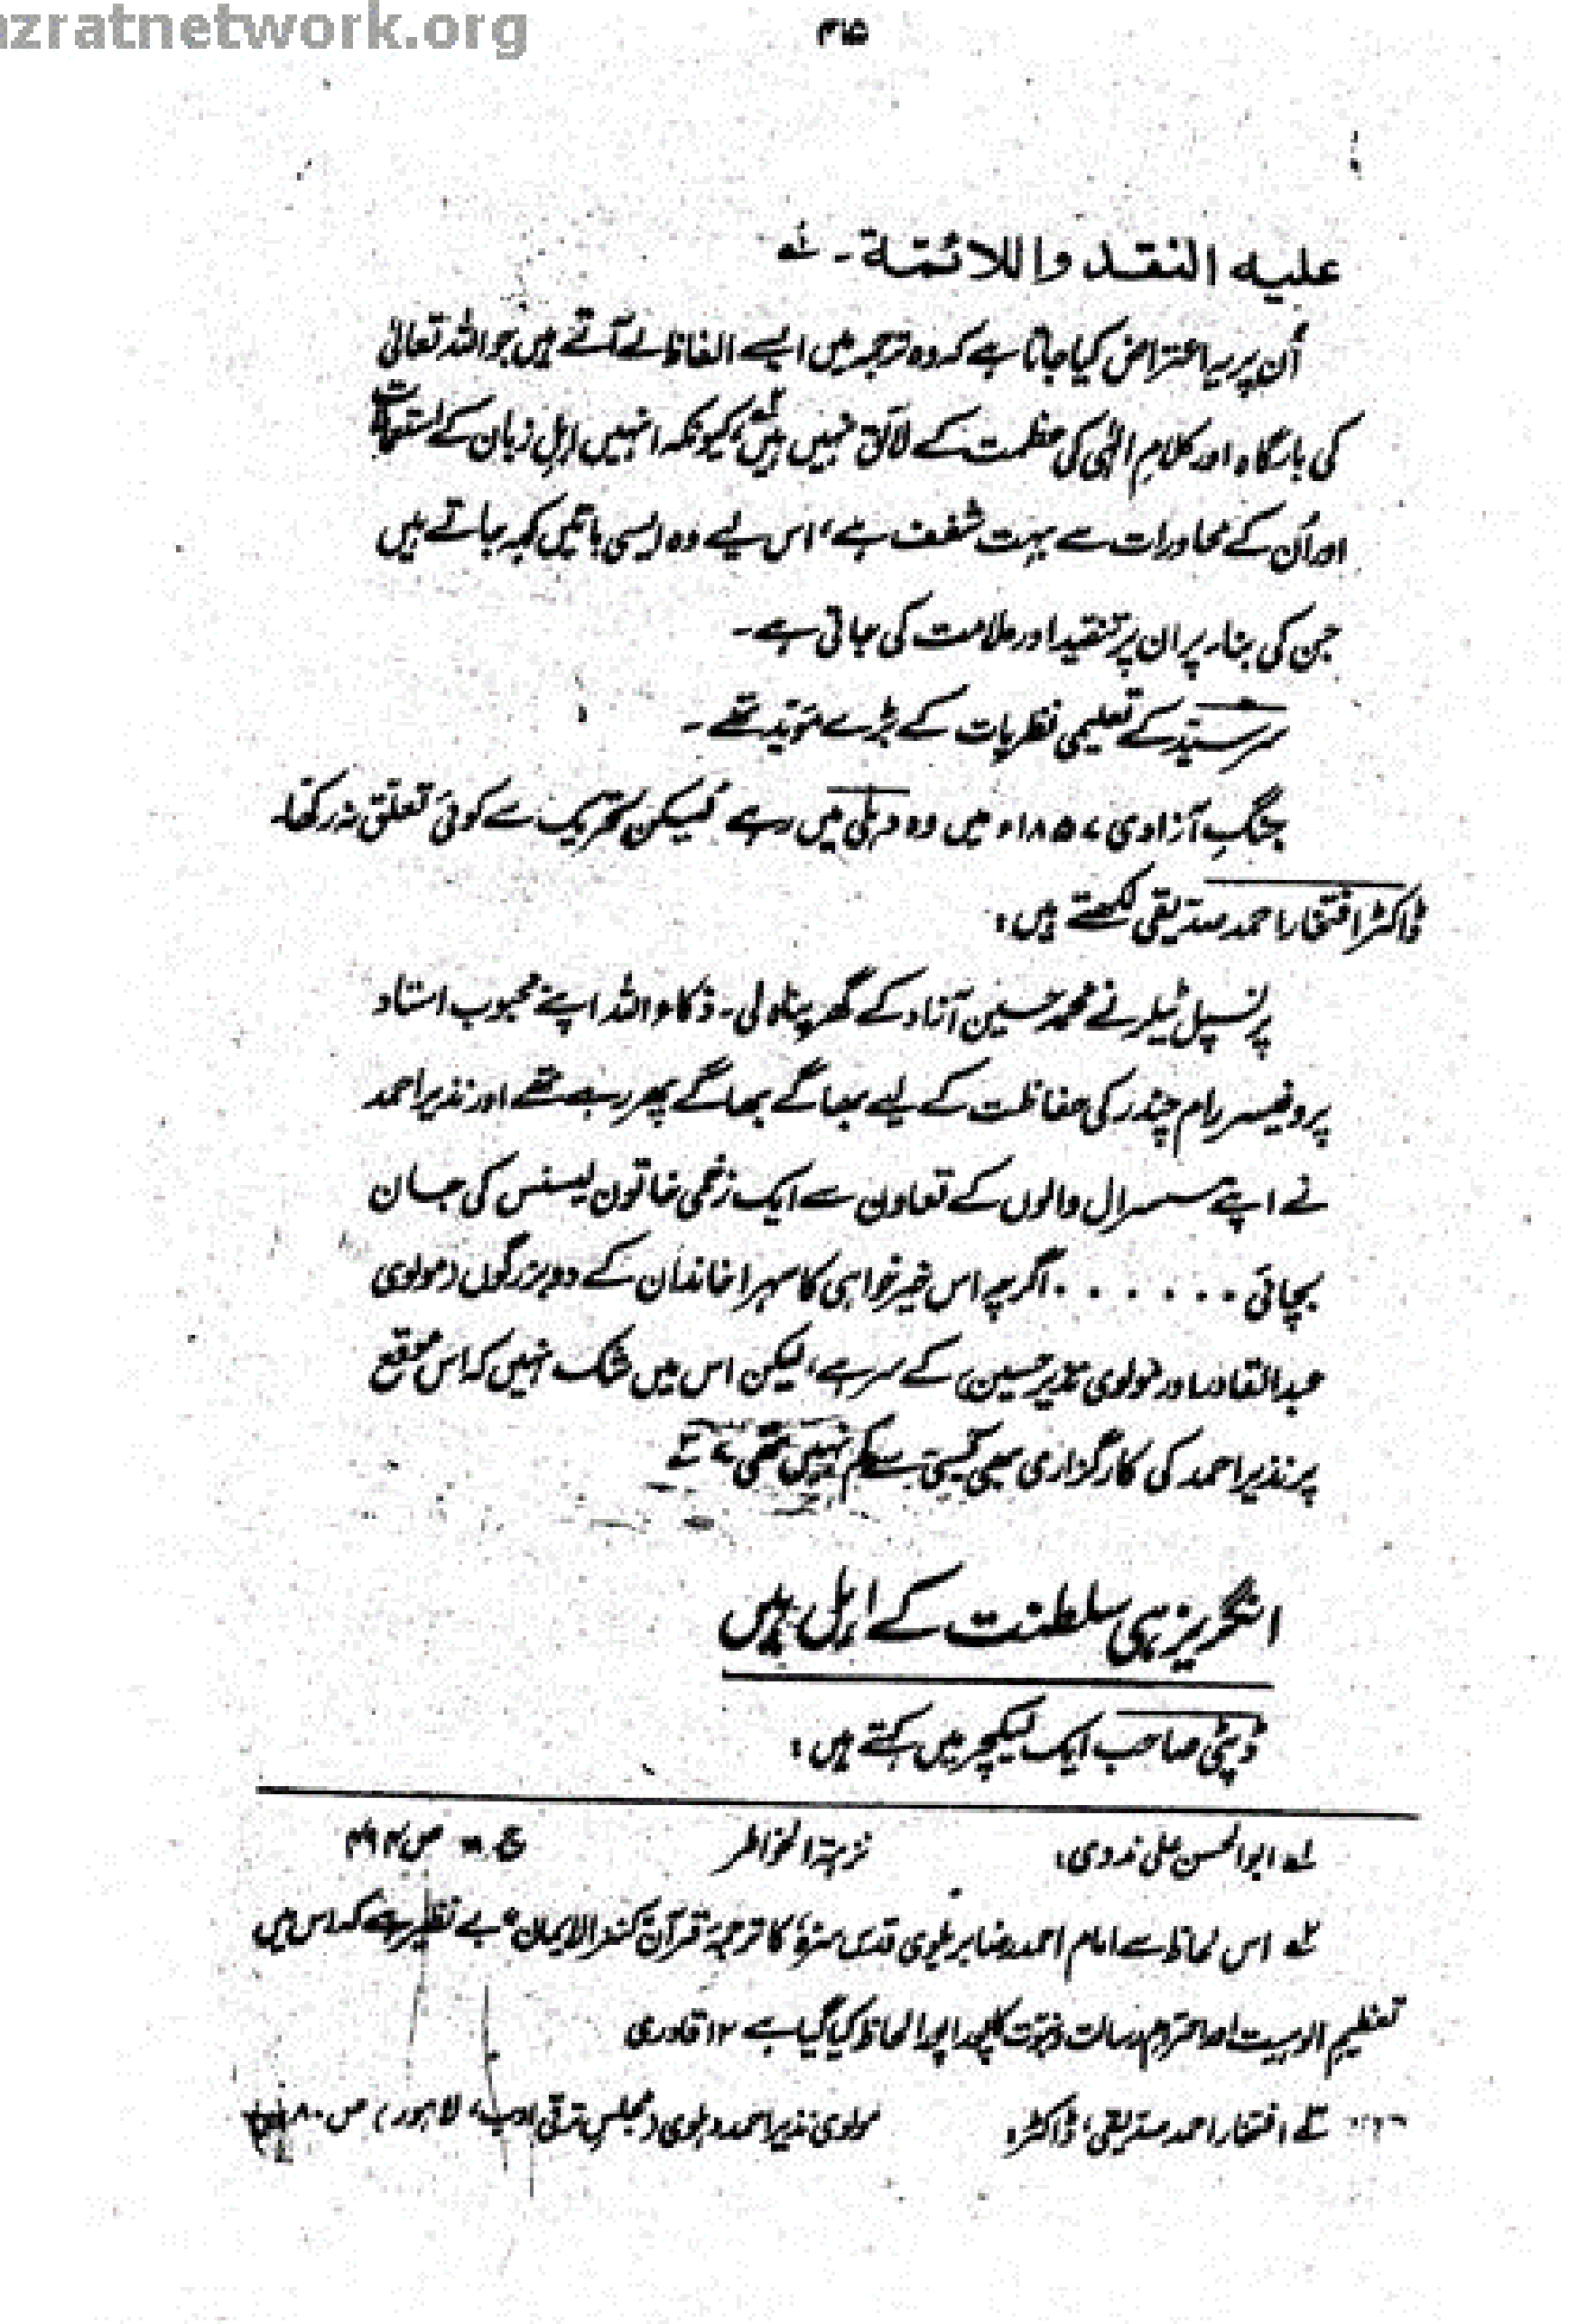 azratnetwork.org
۴۵
علیہ النقد واللائمۃ ۔ لہ
اُن پر یہ اعتراض کیا جاتا ہے کہ وہ ترجمہ میں ایسے الفاظ لے آتے ہیں جو اللہ تعالیٰ
کی بارگاہ اور کلامِ الٰہی کی عظمت کے لائق نہیں ہیں ۲ کیونکہ انہیں اہلِ زبان کے استعمالات
اور اُن کے محاورات سے بہت شغف ہے، اس لیے وہ ایسی باتیں کہہ جاتے ہیں
جن کی بناء پر ان پر تنقید اور ملامت کی جاتی ہے ۔
سرسیّد کے تعلیمی نظریات کے بڑے مؤید تھے ۔
جنگِ آزادی ۱۸۵۷ء میں وہ دہلی میں رہے لیکن تحریک سے کوئی تعلق نہ رکھا۔
ڈاکٹر افتخار احمد صدیقی لکھتے ہیں:
پرنسپل ٹیلر نے محمد حسین آزاد کے گھر پناہ لی ۔ ذکاء اللہ اپنے محبوب استاد
پروفیسر رام چندر کی حفاظت کے لیے بھاگے بھاگے پھر رہے تھے اور نذیر احمد
نے اپنے سسرال والوں کے تعاون سے ایک زخمی خاتون لیسنس کی جان
بچائی . . . . . . . اگرچہ اس خیر خواہی کا سہرا خاندان کے دو بزرگوں (مولوی
عبدالقادر اور مولوی نذیر حسین) کے سر ہے، لیکن اس میں شک نہیں کہ اس موقع
پر نذیر احمد کی کارگزاری بھی کسی سے کم نہیں تھی ۳
انگریز ہی سلطنت کے اہل ہیں
ڈپٹی صاحب ایک لیکچر میں کہتے ہیں:
لہ ابوالحسن علی ندوی: نزہۃ الخواطر ج ۸ ص ۴۹۴
۲ اس لحاظ سے امام احمد رضا بریلوی قدس سرہٗ کا ترجمۂ قرآن "کنزالایمان" بے نظیر ہے کہ اس میں
تعظیمِ الوہیت اور احترامِ رسالت و نبوت کا پورا پورا لحاظ کیا گیا ہے ۱۲ قادری
۳ افتخار احمد صدیقی، ڈاکٹر: مولوی نذیر احمد دہلوی (مجلس ترقی ادب، لاہور) ص